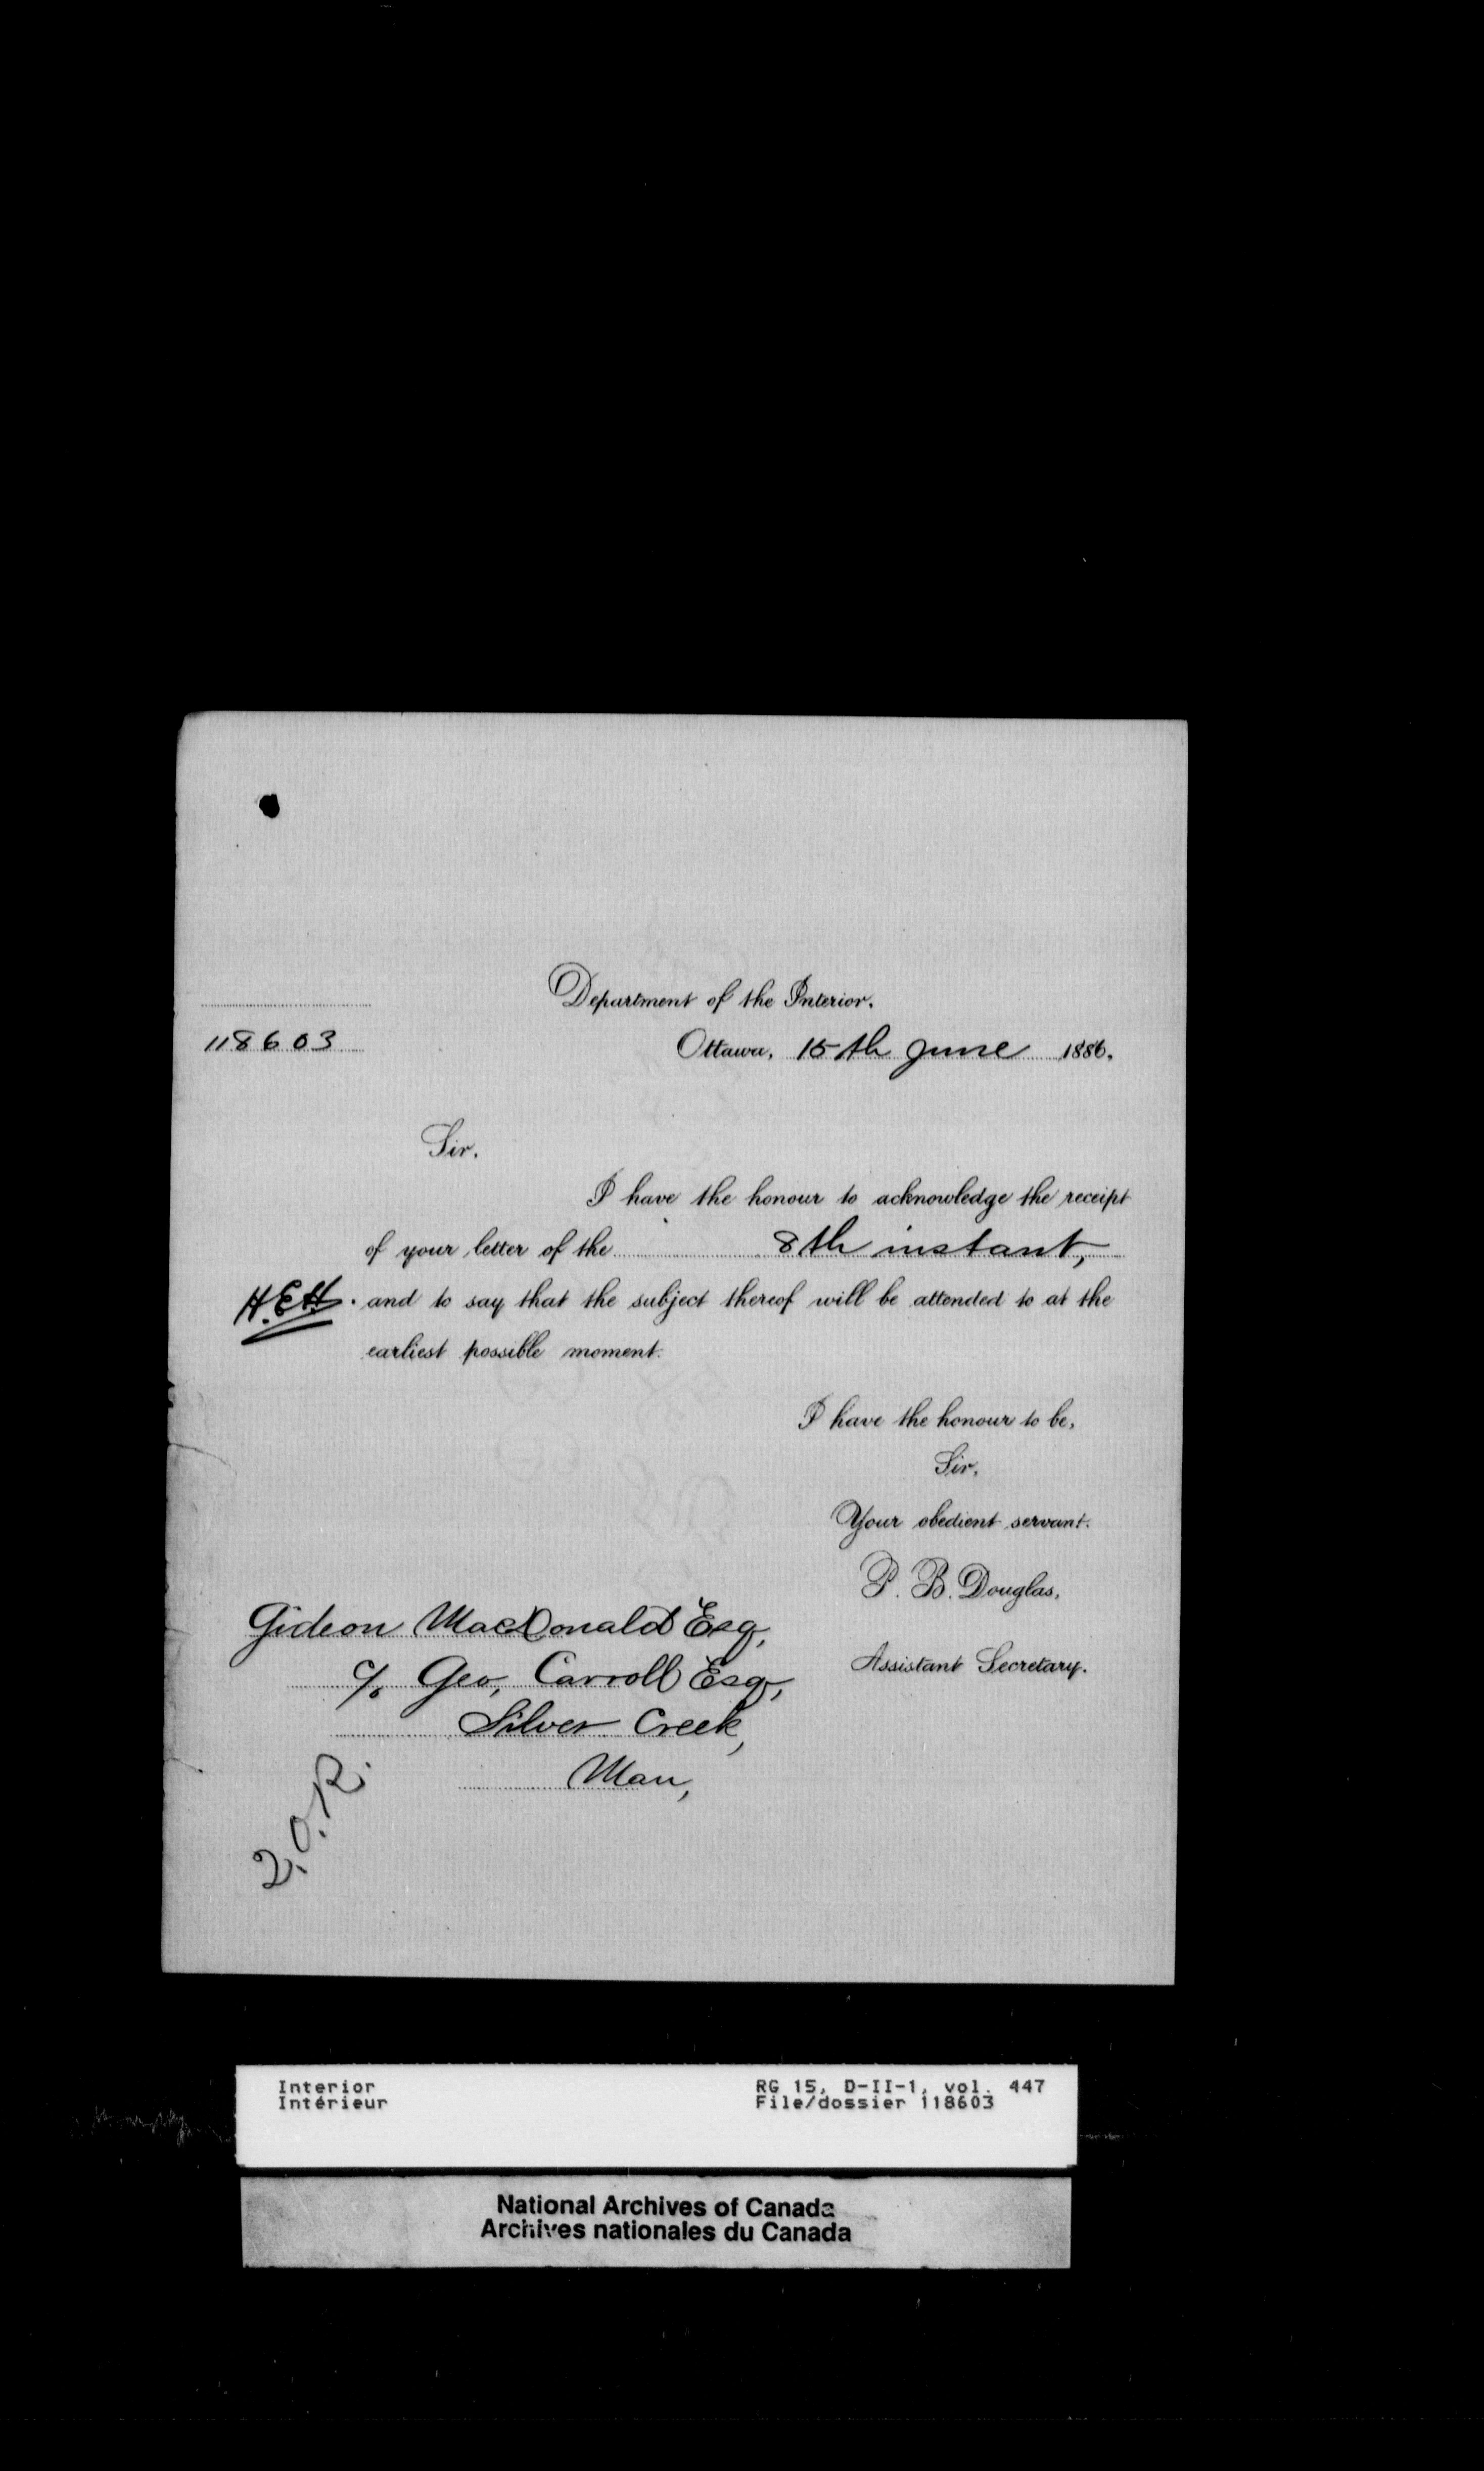 Department of the Interior.
118603
Ottawa, 15th June 1886.
Sir.
I have the honour to acknowledge the receipt
of your letter of the 8th instant,
H.E.H. and to say that the subject thereof will be attended to at the
earliest possible moment.
I have the honour to be,
Sir,
Your obedient servant.
P. B. Douglas,
Assistant Secretary.
Gideon MacDonald Esq,
c/o Geo, Carroll Esq,
Silver Creek,
Man,
2.O.R.
Interior
Intérieur
RG 15, D-II-1, vol. 447
File/dossier 118603
National Archives of Canada
Archives nationales du Canada